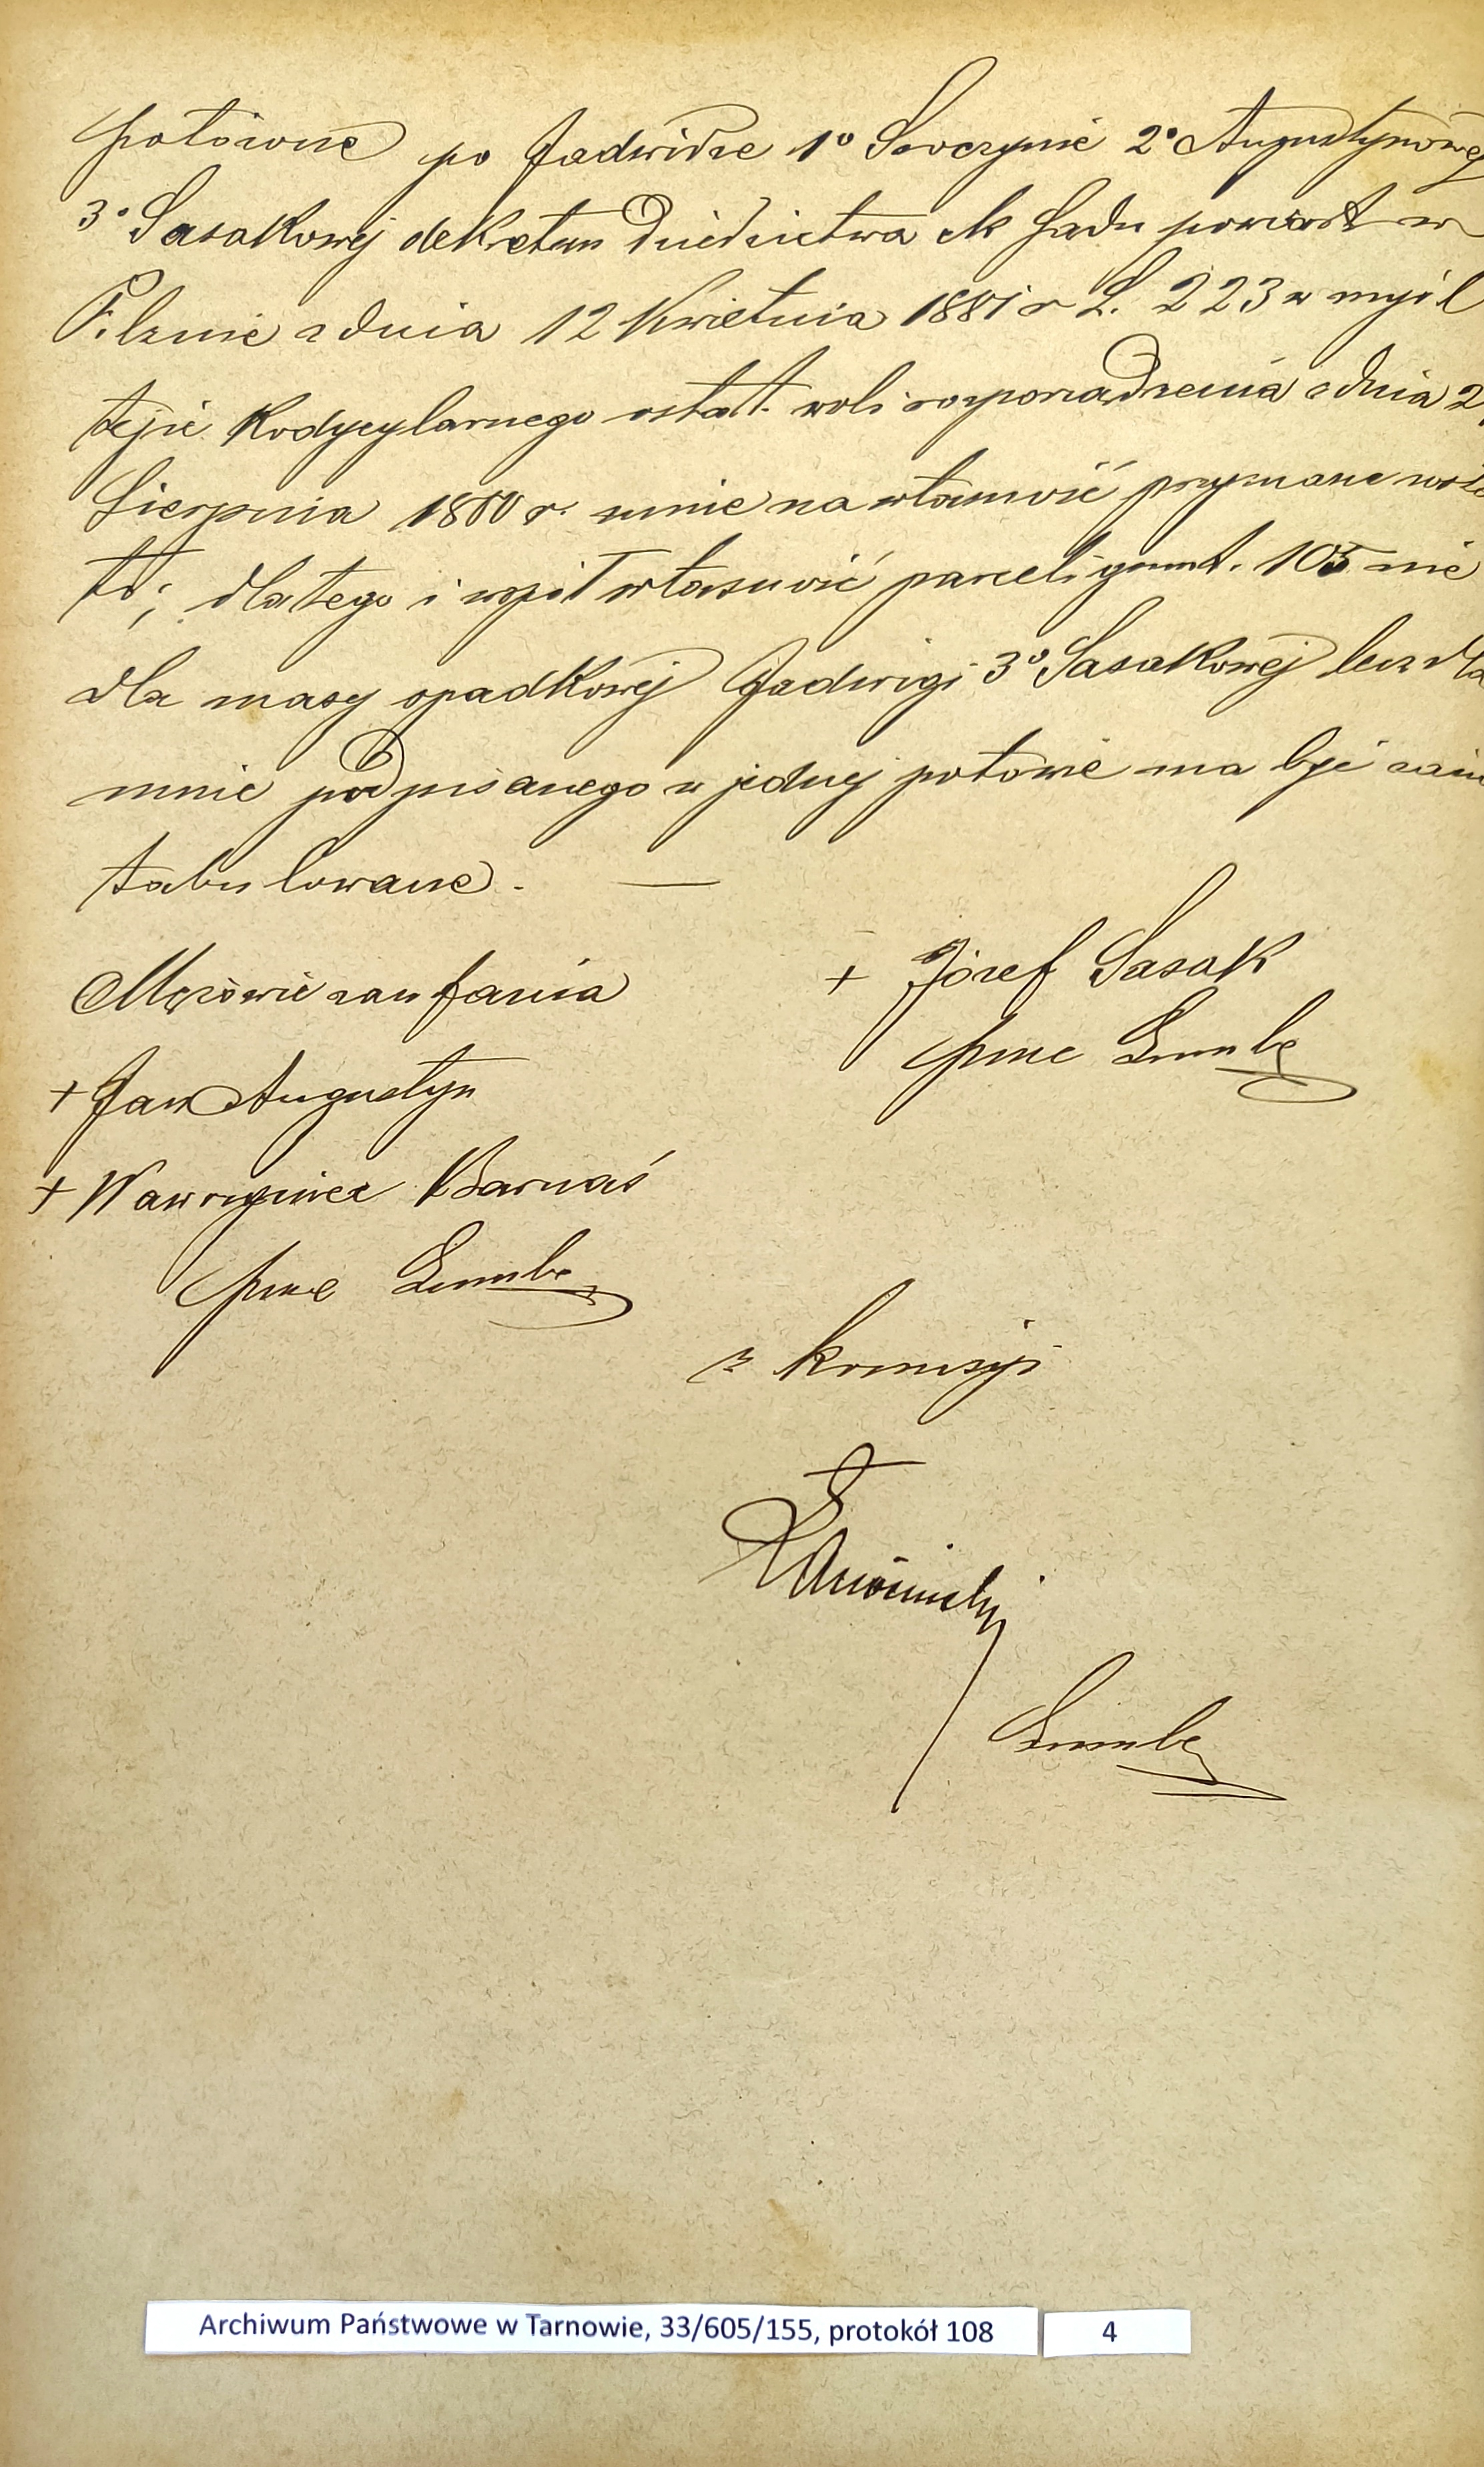 połowne po Jadwidze 1º Soczynie 2º Augustynowej
3º Sasakowej dekretem Dziedzictwa ck Sądu powiat w
Pilznie z dnia 12 Kwietnia 1881 r L. 223 w myśl
tejże Kodycylarnego ostat. woli rozporządzenia z dnia 2
Sierpnia 1880 r. mnie na własność przyznane
to; dlatego i współwłasność parceli grunt. 105 nie
dla masy spadkowej Jadwigi 3º Sasakowej lecz dla
mnie podpisanego w jednej połowie ma być zain
tabulowane. —
Mężowie zaufania
+ Józef Sasak
+ Jan Augustyn
+ Wawrzyniec Barnaś
z komisyi
Archiwum Państwowe w Tarnowie, 33/605/155, protokół 108 4